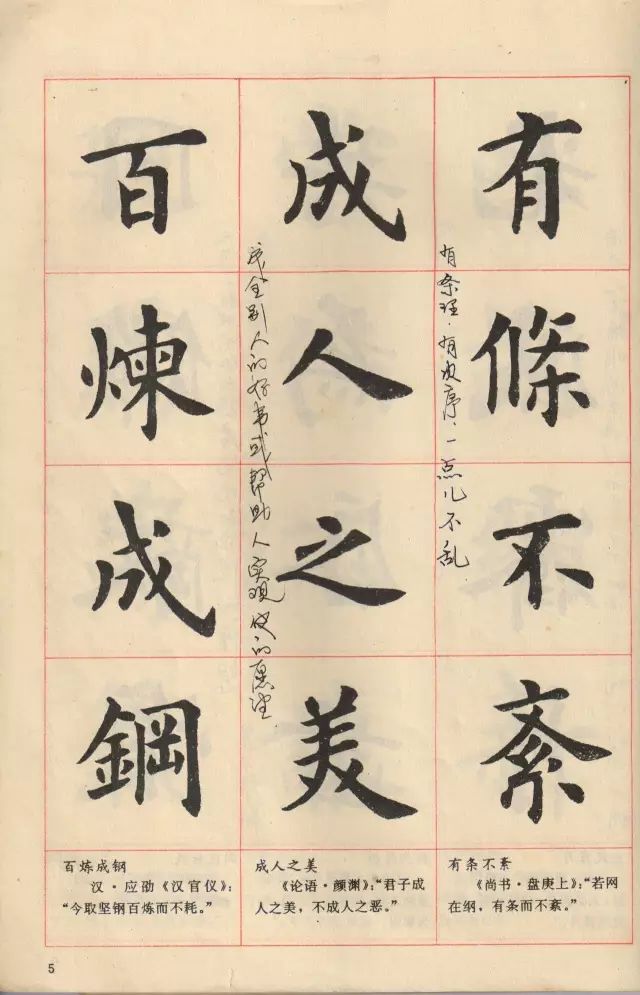 有條不紊
有条理.有次序.一点儿不乱
成人之美
成全别人的好事或帮助人实现他的愿望.
百煉成鋼
百炼成钢
汉·应劭《汉官仪》：
“今取坚钢百炼而不耗。”
成人之美
《论语·颜渊》：“君子成
人之美，不成人之恶。”
有条不紊
《尚书·盘庚上》：“若网
在纲，有条而不紊。”
5